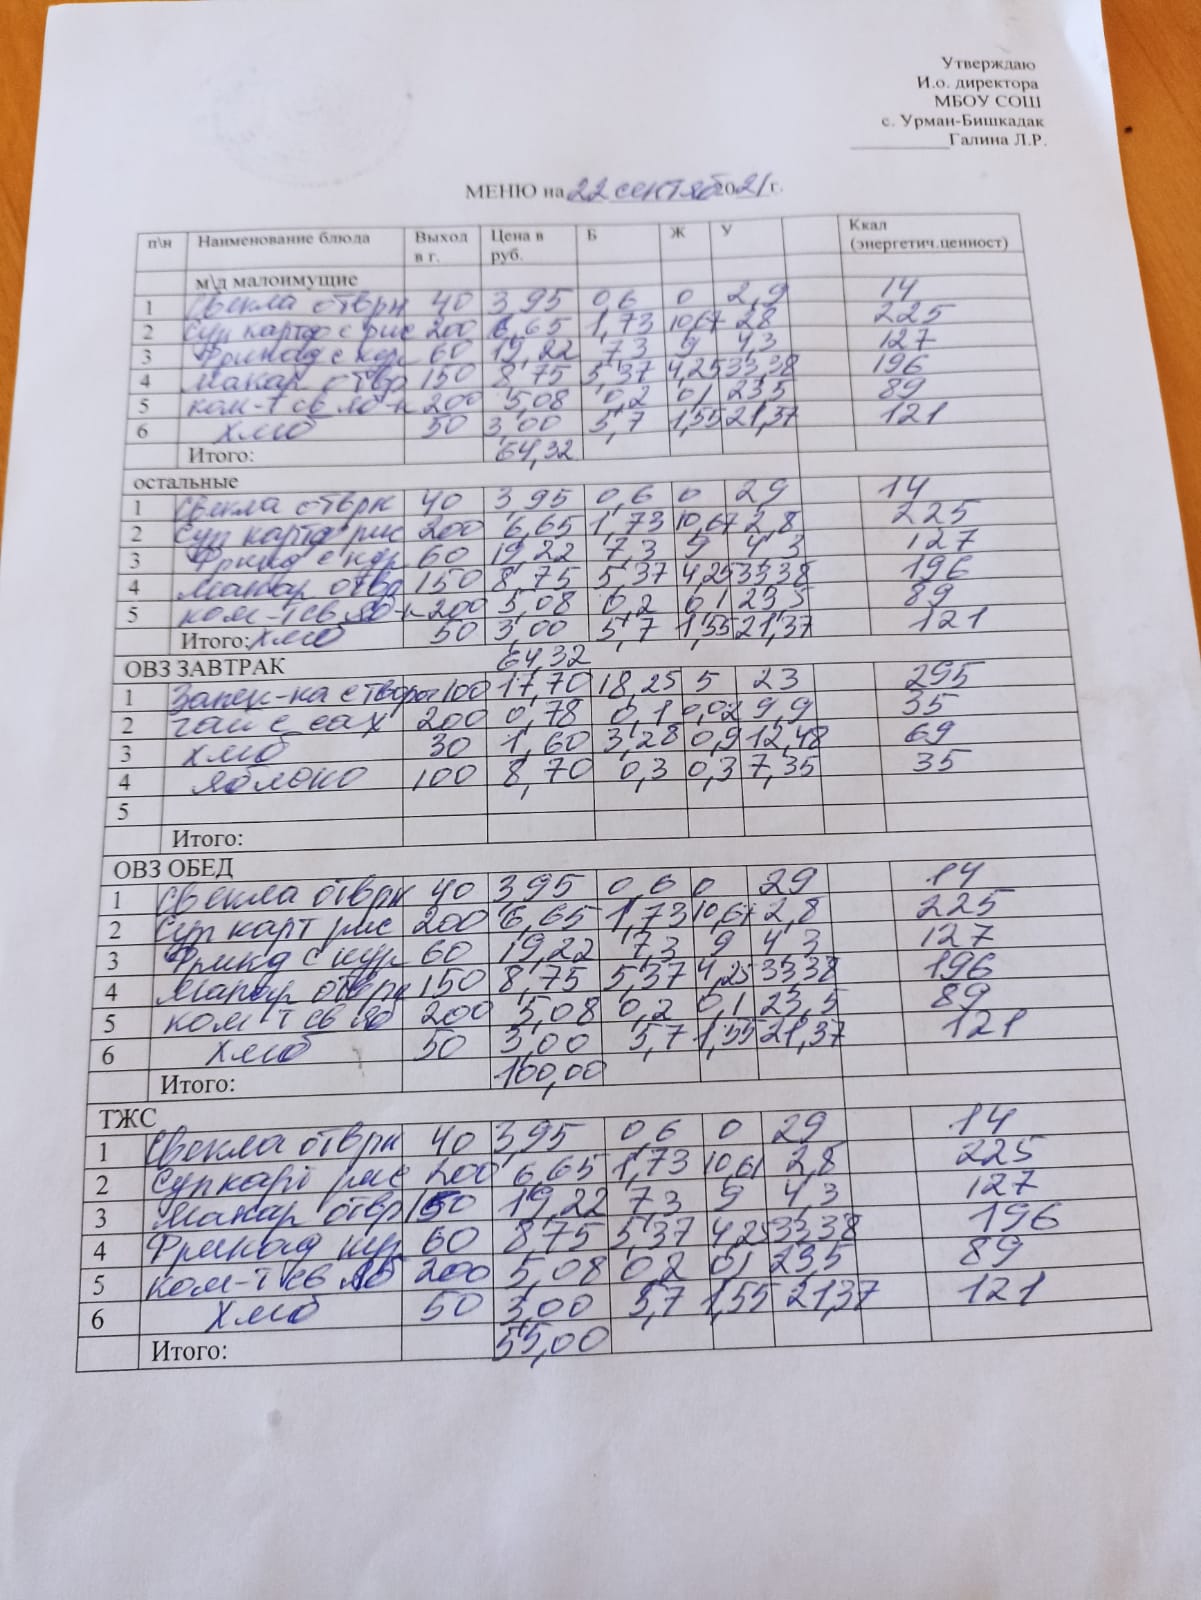 Утверждаю
И.о. директора
МБОУ СОШ
с. Урман-Бишкадак
__________Галина Л.Р.
МЕНЮ на 22 сентяб 2021 г.
п\н Наименование блюда Выход в г. Цена в руб. Б Ж У Ккал (энергетич.ценност)
м\д малоимущие
1 Свекла отврн 40 3,95 0,6 0 2,9 14
2 Суп картоф с рис 200 6,65 1,73 10,67 28 225
3 Фрикад с кур 60 19,22 73 9 4,3 127
4 Макар отва 150 8,75 5,37 4,25 33,38 196
5 ком-т св яб-к 200 5,08 0,2 01 235 89
6 Хлеб 50 3,00 5,7 1,55 21,37 121
Итого: 64,32
остальные
1 Свекла отврн 40 3,95 0,6 0 29 14
2 Суп картф рис 200 6,65 1,73 10,67 2,8 225
3 Фрикд с кур 60 19,22 7,3 9 43 127
4 Макар отва 150 8,75 5,37 4,25 33,38 196
5 ком-т св яб-к 200 5,08 0,2 01 235 89
Итого: Хлеб 50 3,00 5,7 1,55 21,37 121
64,32
ОВЗ ЗАВТРАК
1 Запек-ка с творог 100 17,70 18,25 5 23 295
2 чай с сах 200 0,78 0,1 0,02 9,9 35
3 Хлеб 30 1,60 3,28 0,9 12,48 69
4 яблоко 100 8,70 0,3 0,3 7,35 35
5
Итого:
ОВЗ ОБЕД
1 Свекла отврн 40 3,95 0,6 0 29 14
2 Суп карт рис 200 6,65 1,73 10,61 2,8 225
3 Фрикд с кур 60 19,22 7,3 9 43 127
4 Макар отврн 150 8,75 5,37 4,25 33,38 196
5 ком-т св яб 200 5,08 0,2 0,1 23,5 89
6 Хлеб 50 3,00 5,7 1,55 21,37 121
Итого: 100,00
ТЖС
1 Свекла отврн 40 3,95 0,6 0 29 14
2 Суп карт рис 200 6,65 1,73 10,61 2,8 225
3 Макар отвр 150 19,22 7,3 9 4,3 127
4 Фрикад кур 60 875 5,37 4,25 33,38 196
5 ком-т св яб 200 5,08 02 01 23,5 89
6 Хлеб 50 3,00 5,7 1,55 21,37 121
Итого: 55,00